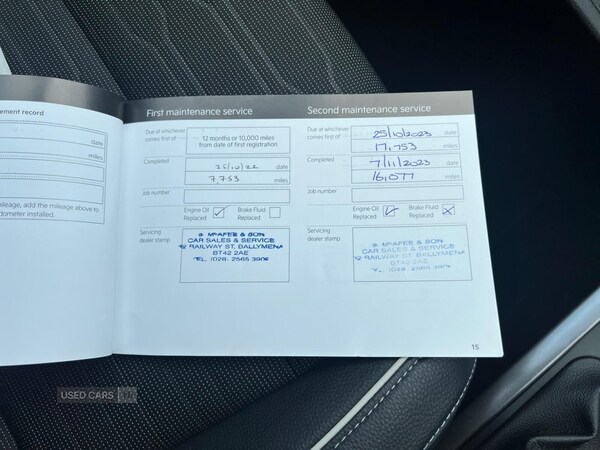 ement record
date
miles
mileage, add the mileage above to
dometer installed.
First maintenance service
Due at whichever
comes first of
12 months or 10,000 miles
from date of first registration
Completed
25/10/22 date
7,753 miles
Job number
Engine Oil
Replaced
Brake Fluid
Replaced
Servicing
dealer stamp
McAFEE & SON
CAR SALES & SERVICE
RAILWAY ST. BALLYMENA
BT42 2AE
TEL. (028. 2565 3906
Second maintenance service
Due at whichever
comes first of
25/10/2023 date
17,753 miles
Completed
7/11/2023 date
16,077 miles
Job number
Engine Oil
Replaced
Brake Fluid
Replaced
Servicing
dealer stamp
McAFEE & SON
CAR SALES & SERVICE
RAILWAY ST. BALLYMENA
BT42 2AE
TEL. (028. 2565 3906
15
USED CARS NI